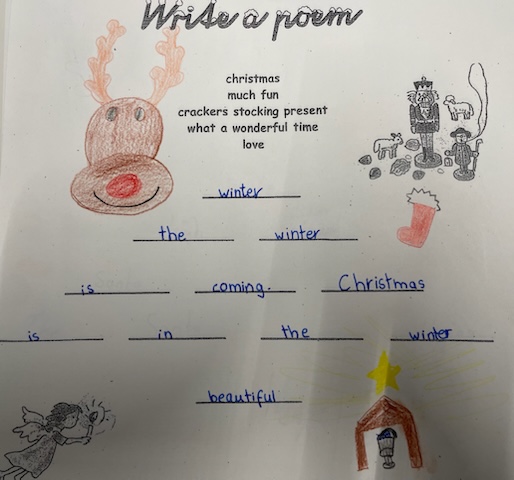 Write a poem
christmas
much fun
crackers stocking present
what a wonderful time
love
winter
the winter
is coming. Christmas
is in the winter
beautiful